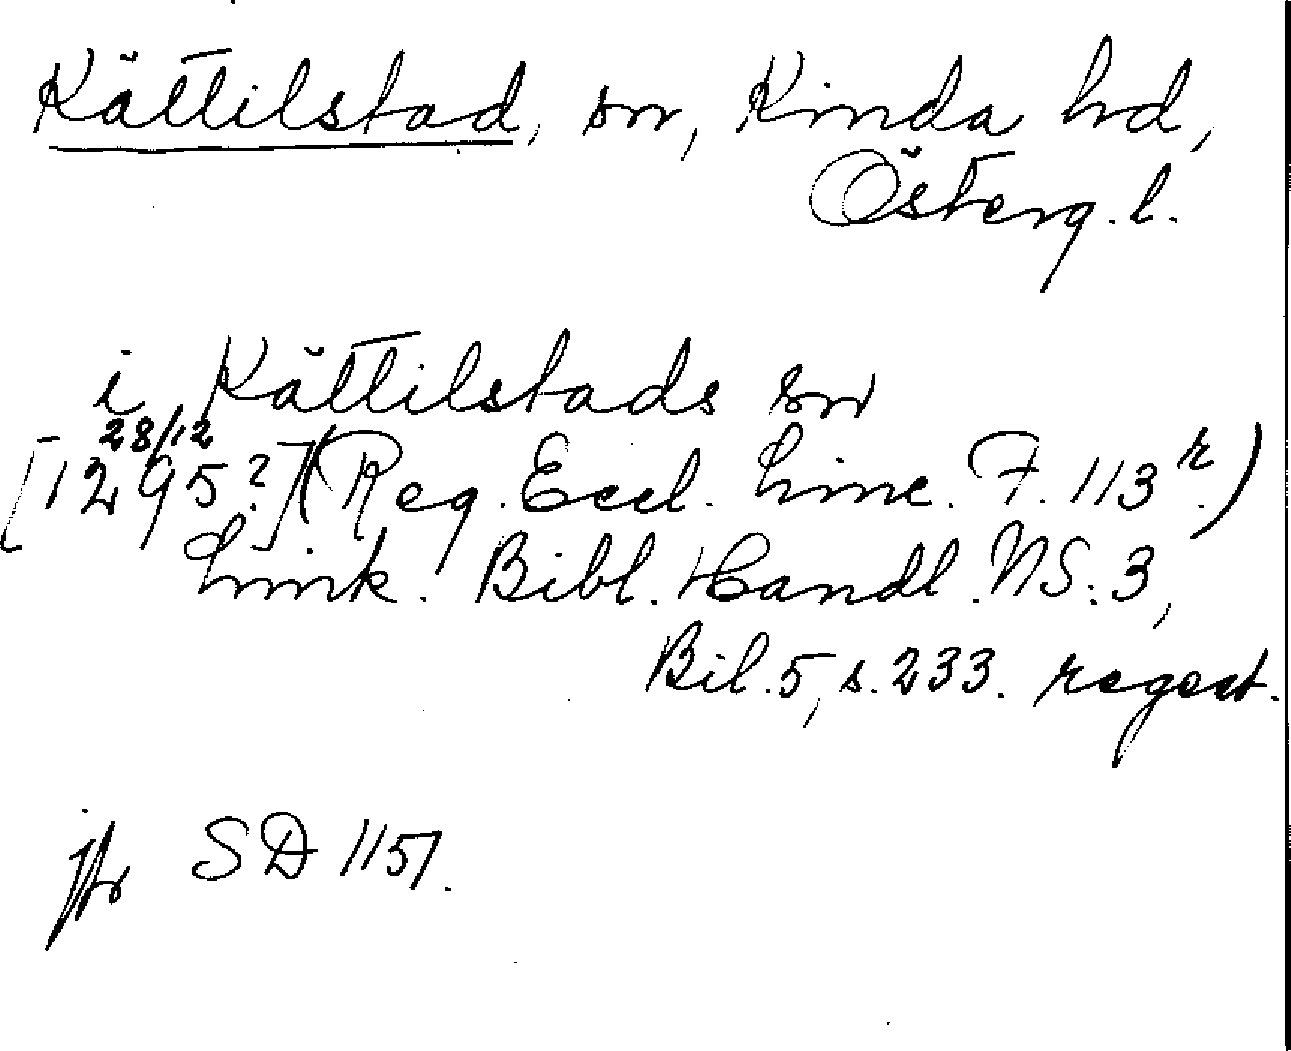 Kättilstad, sn, Kinda hd,
Österg. l.
i Kättilstads sn
28/12
[1295?] (Reg. Eccl. Linc. F. 113 r.)
Link. Bibl. Handl. NS. 3,
Bil. 5, s. 233. regest.
jfr SD 1157.